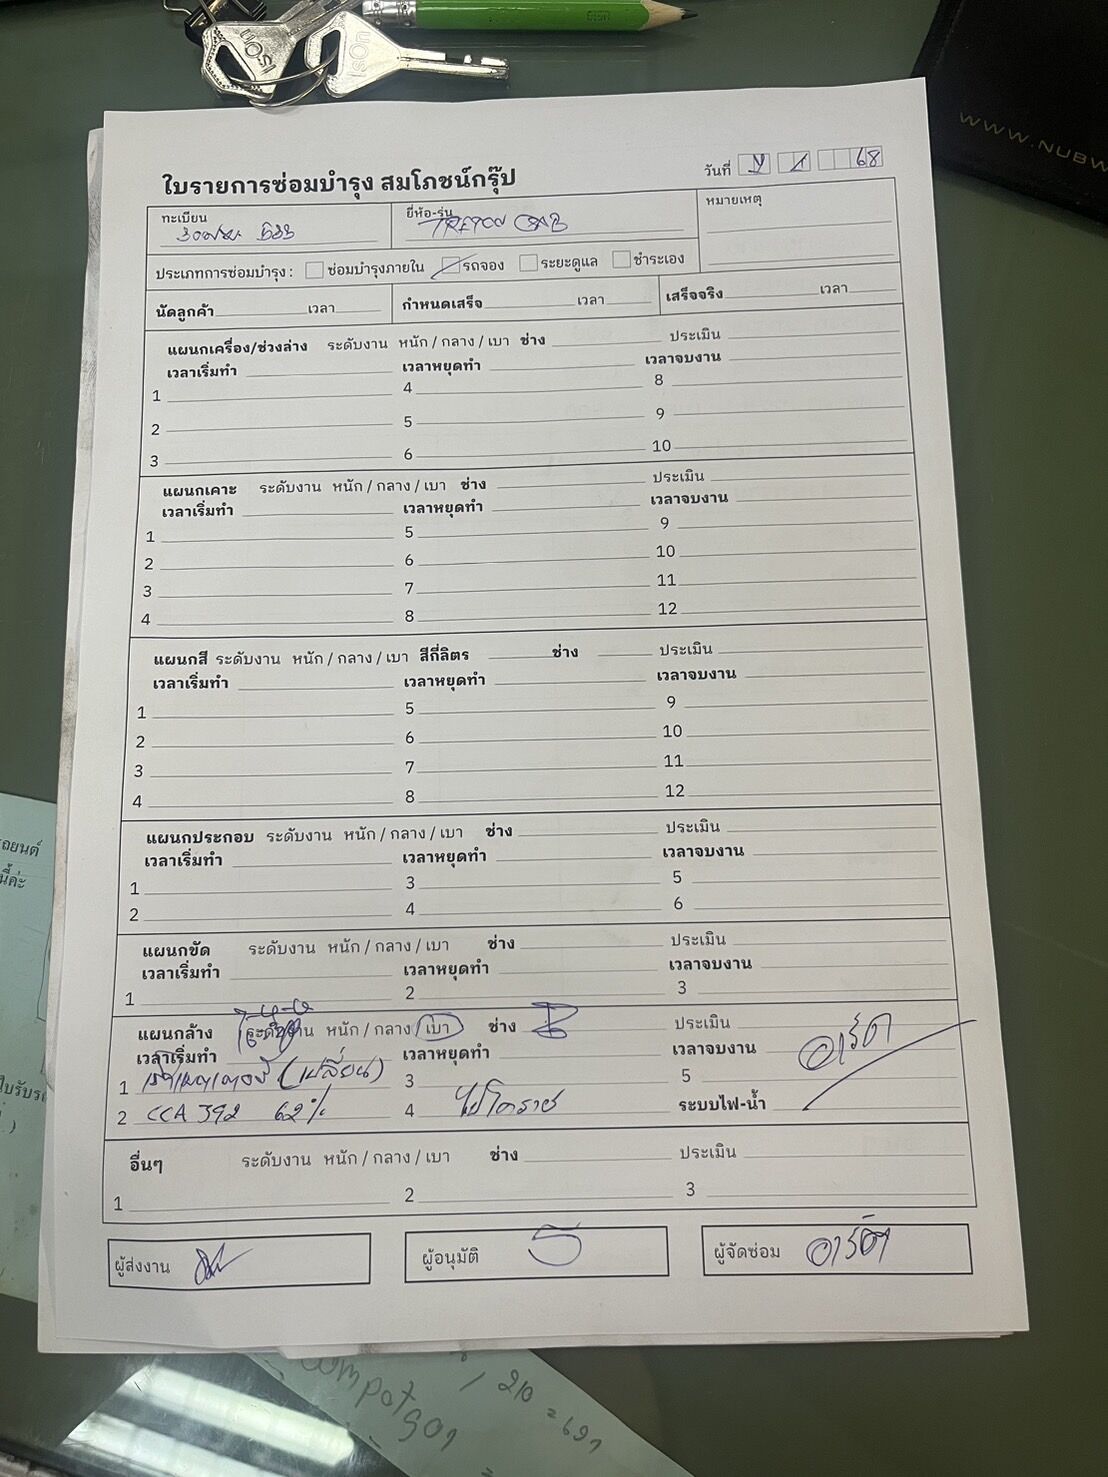 ISON
ISON
WWW.NUBW
ใบรายการซ่อมบำรุง สมโภชน์กรุ๊ป
วันที่ 68
ทะเบียน
ยี่ห้อ-รุ่น
TRITON CAB
หมายเหตุ
ประเภทการซ่อมบำรุง : ซ่อมบำรุงภายใน รถจอง ระยะดูแล ชำระเอง
นัดลูกค้า เวลา กำหนดเสร็จ เวลา เสร็จจริง เวลา
แผนกเครื่อง/ช่วงล่าง ระดับงาน หนัก / กลาง / เบา ช่าง ประเมิน
เวลาเริ่มทำ เวลาหยุดทำ เวลาจบงาน
1 4 8
2 5 9
3 6 10
แผนกเคาะ ระดับงาน หนัก / กลาง / เบา ช่าง ประเมิน
เวลาเริ่มทำ เวลาหยุดทำ เวลาจบงาน
1 5 9
2 6 10
3 7 11
4 8 12
แผนกสี ระดับงาน หนัก / กลาง / เบา สีกี่ลิตร ช่าง ประเมิน
เวลาเริ่มทำ เวลาหยุดทำ เวลาจบงาน
1 5 9
2 6 10
3 7 11
4 8 12
แผนกประกอบ ระดับงาน หนัก / กลาง / เบา ช่าง ประเมิน
เวลาเริ่มทำ เวลาหยุดทำ เวลาจบงาน
1 3 5
2 4 6
แผนกขัด ระดับงาน หนัก / กลาง / เบา ช่าง ประเมิน
เวลาเริ่มทำ เวลาหยุดทำ เวลาจบงาน
1 2 3
แผนกล้าง ระดับงาน หนัก / กลาง / เบา ช่าง ประเมิน
เวลาเริ่มทำ เวลาหยุดทำ เวลาจบงาน
1 (เปลี่ยน) 3 5
2 CCA 392 62% 4 ไฟโคราช ระบบไฟ-น้ำ
อื่นๆ ระดับงาน หนัก / กลาง / เบา ช่าง ประเมิน
1 2 3
ผู้ส่งงาน ผู้อนุมัติ ผู้จัดซ่อม
/ 210 = 691